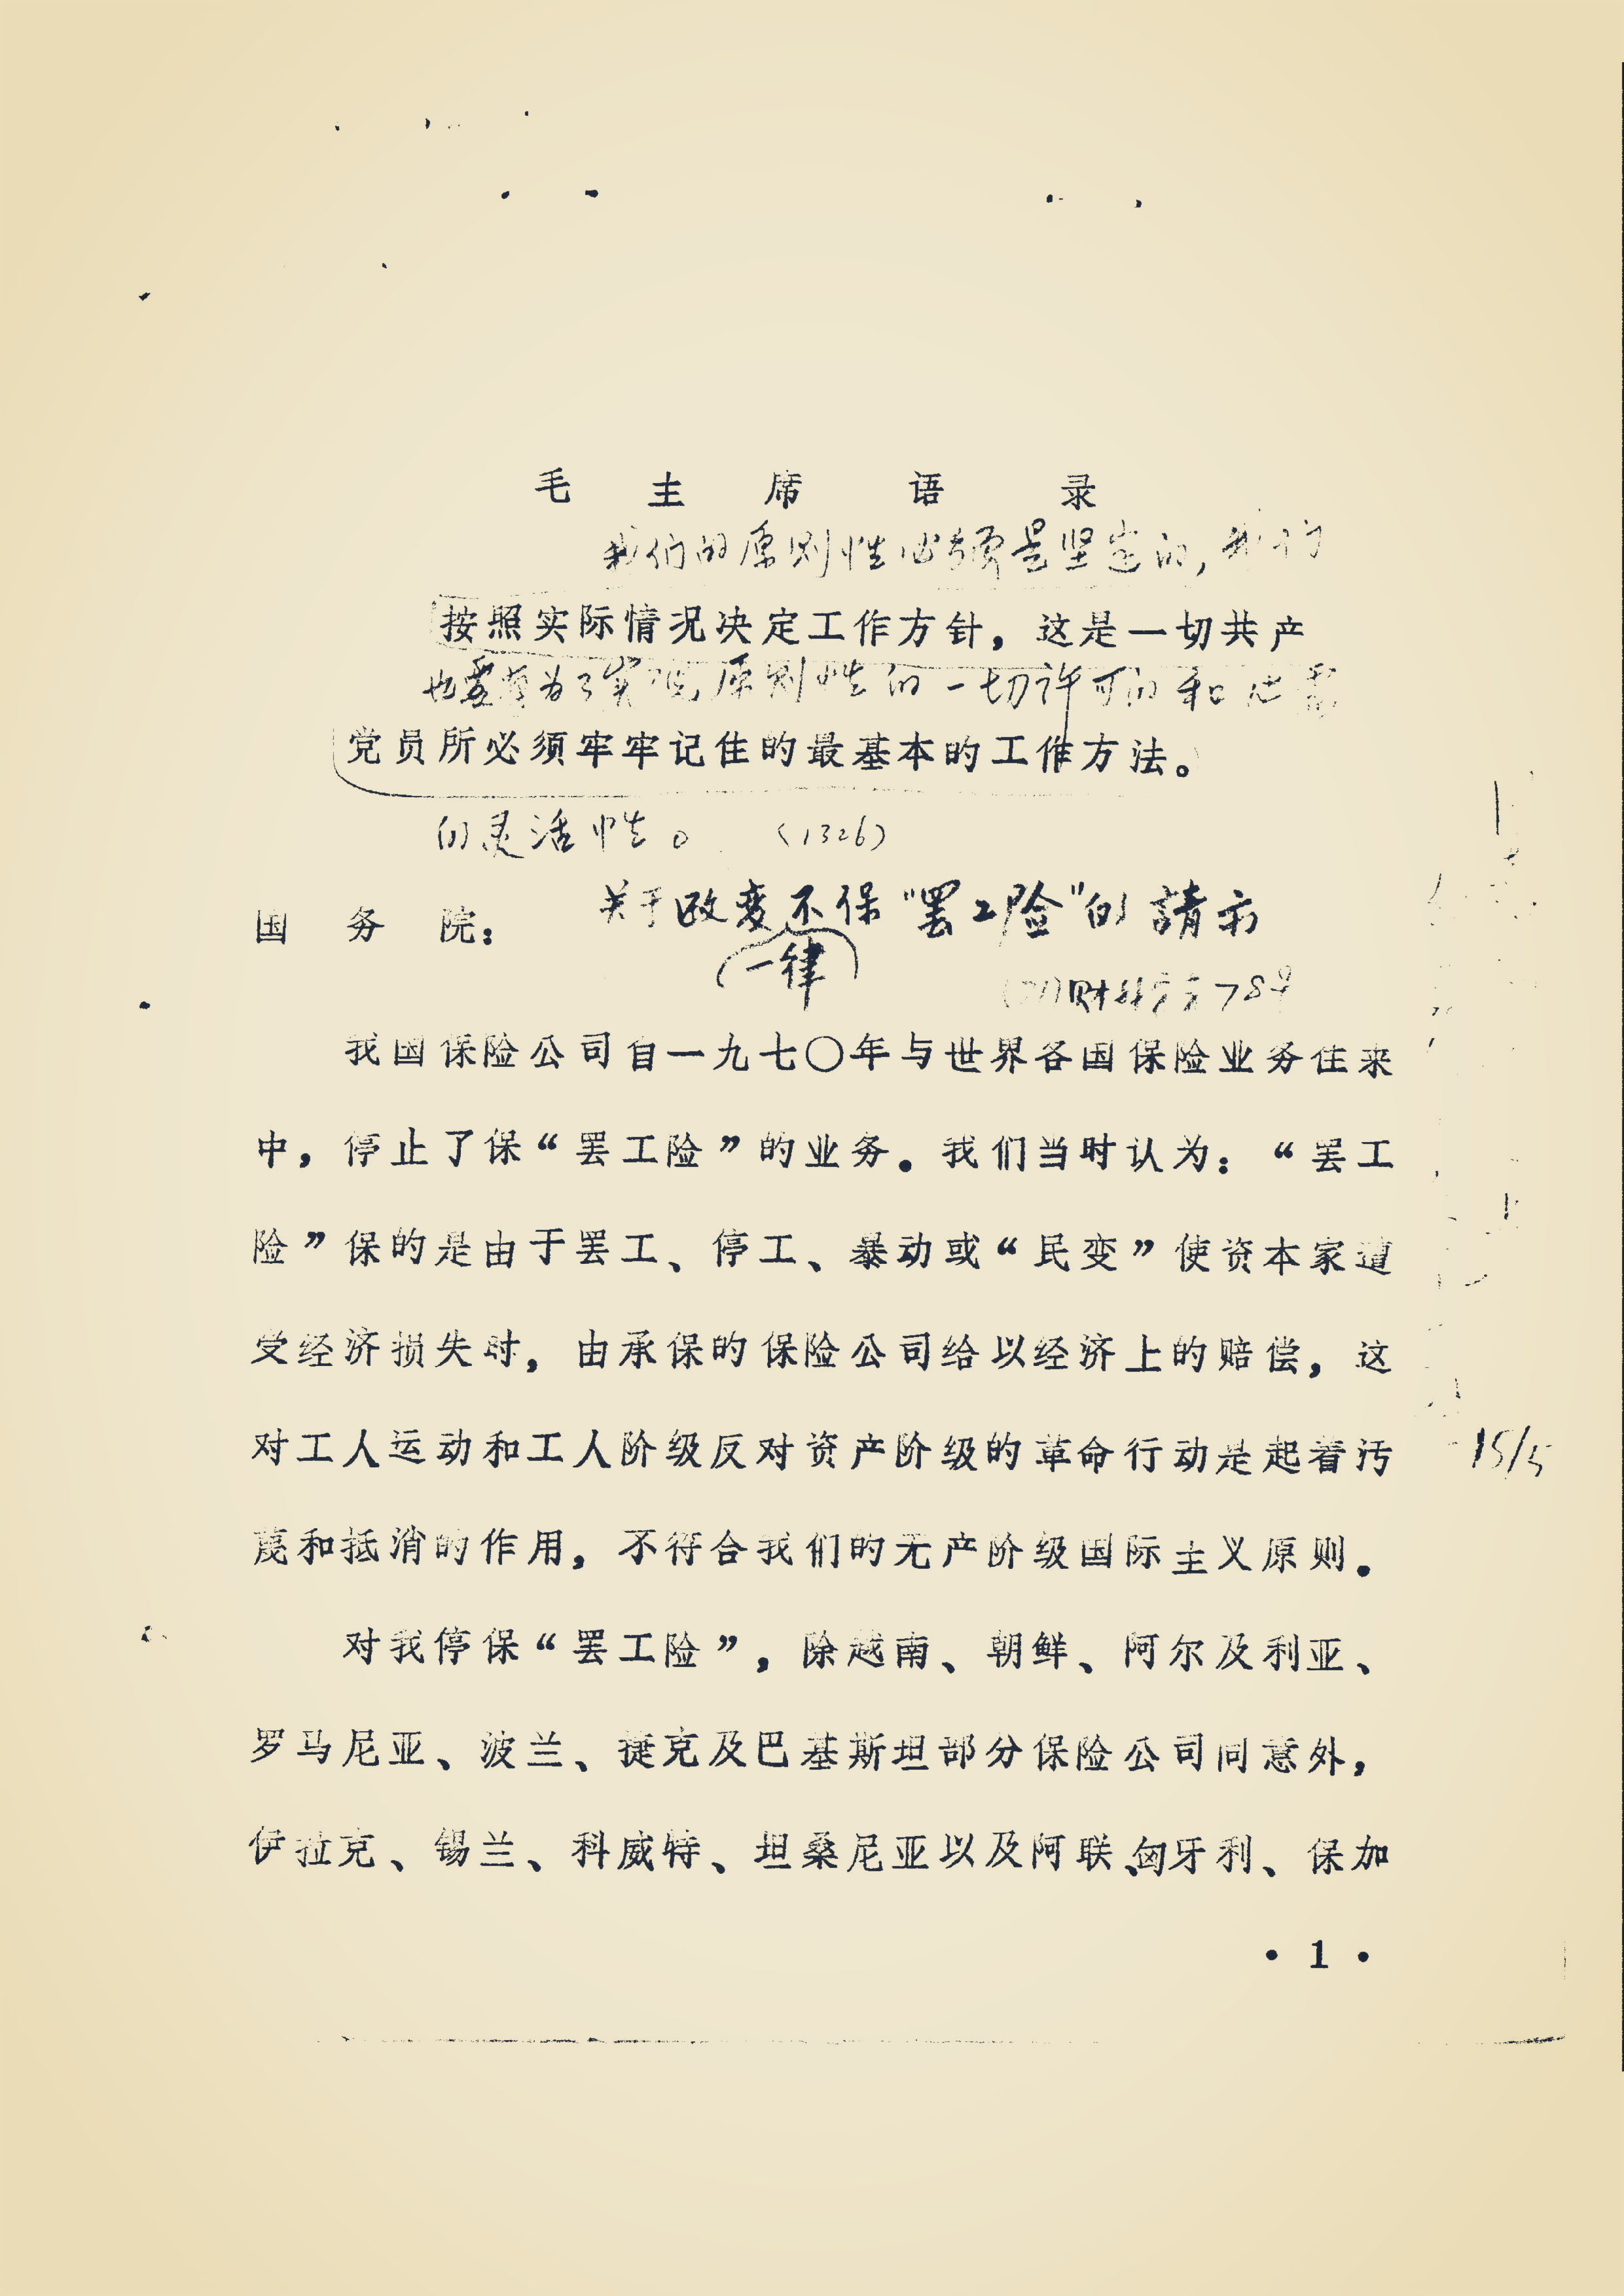 毛主席语录
我们的原则性必须是坚定的，我们
按照实际情况决定工作方针，这是一切共产
也要有为了实现原则性的一切许可的和必需
党员所必须牢牢记住的最基本的工作方法。
的灵活性。（1326）
国务院：
关于改变不保“罢工险”的請示
一律
财 字 78号
我国保险公司自一九七〇年与世界各国保险业务往来
中，停止了保“罢工险”的业务．我们当时认为：“罢工
险”保的是由于罢工、停工、暴动或“民变”使资本家遭
受经济损失时，由承保的保险公司给以经济上的赔偿，这
对工人运动和工人阶级反对资产阶级的革命行动是起着污
蔑和抵消的作用，不符合我们的无产阶级国际主义原则．
15/5
对我停保“罢工险”，除越南、朝鲜、阿尔及利亚、
罗马尼亚、波兰、捷克及巴基斯坦部分保险公司同意外，
伊拉克、锡兰、科威特、坦桑尼亚以及阿联、匈牙利、保加
·1·